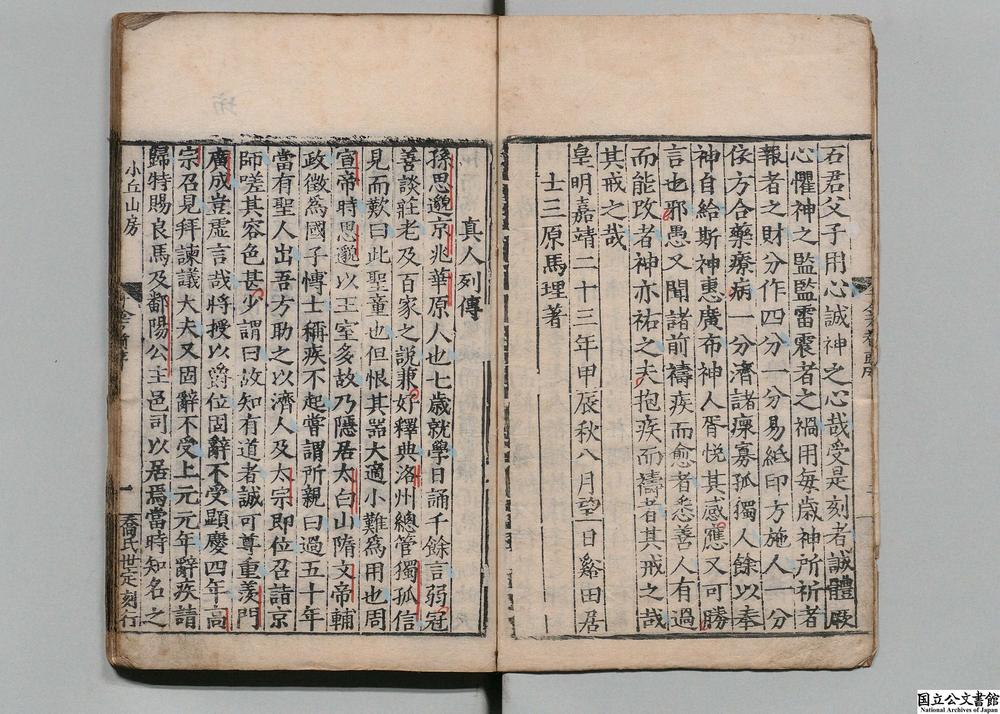 石君父子用心誠神之心哉受是刻者誠體厥
心懼神之監監雷震者之禍用每歳神所祈者
報者之財分作四分一分易紙印方施人一分
依方合藥療病一分濟諸㷀寡孤獨人餘以奉
神自給斯神惠廣布神人胥悦其感應又可勝
言也邪愚又聞諸前禱疾而愈者悉善人有過
而能改者神亦祐之夫抱疾而禱者其戒之哉
其戒之哉
皇明嘉靖二十三年甲辰秋八月望一日谿田居
士三原馬理著
真人列傳
孫思邈京兆華原人也七歳就學日誦千餘言弱冠
善談莊老及百家之説兼好釋典洛州總管獨孤信
見而歎曰此聖童也但恨其器大適小難爲用也周
宣帝時思邈以王室多故乃隱居太白山隋文帝輔
政徵爲國子博士稱疾不起嘗謂所親曰過五十年
當有聖人出吾方助之以濟人及太宗即位召詣京
師嗟其容色甚少謂曰故知有道者誠可尊重羨門
廣成豈虚言哉將授以爵位固辭不受顯慶四年高
宗召見拜諫議大夫又固辭不受上元元年辭疾請
歸特賜良馬及鄱陽公主邑司以居焉當時知名之
小丘山房
一
喬氏世定刻行
国立公文書館
National Archives of Japan